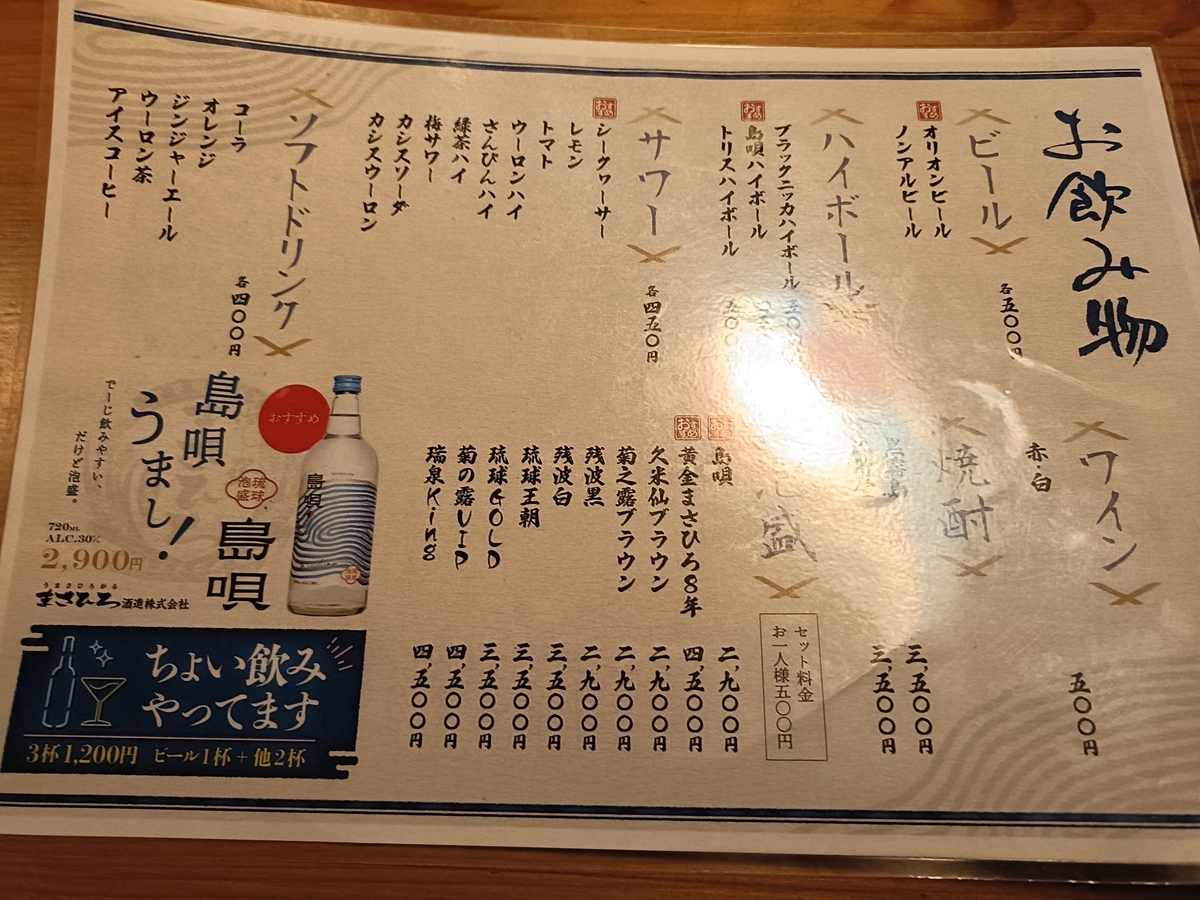 お飲み物
ビール
各五〇〇円
オリオンビール
ノンアルビール
ハイボール
ブラックニッカハイボール
島唄ハイボール
トリスハイボール
サワー
各四五〇円
シークヮーサー
レモン
トマト
ウーロンハイ
さんぴんハイ
緑茶ハイ
梅サワー
カシスソーダ
カシスウーロン
ソフトドリンク
各四〇〇円
コーラ
オレンジ
ジンジャーエール
ウーロン茶
アイスコーヒー
ワイン
赤・白
五〇〇円
焼酎
三、五〇〇円
三、五〇〇円
盛
セット料金
お一人様五〇〇円
島唄 二、九〇〇円
黄金まさひろ8年 四、五〇〇円
久米仙ブラウン 二、九〇〇円
菊之露ブラウン 二、九〇〇円
残波黒 二、九〇〇円
残波白 三、五〇〇円
琉球王朝 三、五〇〇円
琉球GOLD 三、五〇〇円
菊の露VIP 四、五〇〇円
瑞泉King 四、五〇〇円
おすすめ
島唄
琉球泡盛
島唄
島唄
うまし!
でーじ飲みやすい、
だけど泡盛。
720ML
ALC.30%
2,900円
うまさひろがる
まさひろ酒造株式会社
ちょい飲み
やってます
3杯1,200円 ビール1杯+他2杯